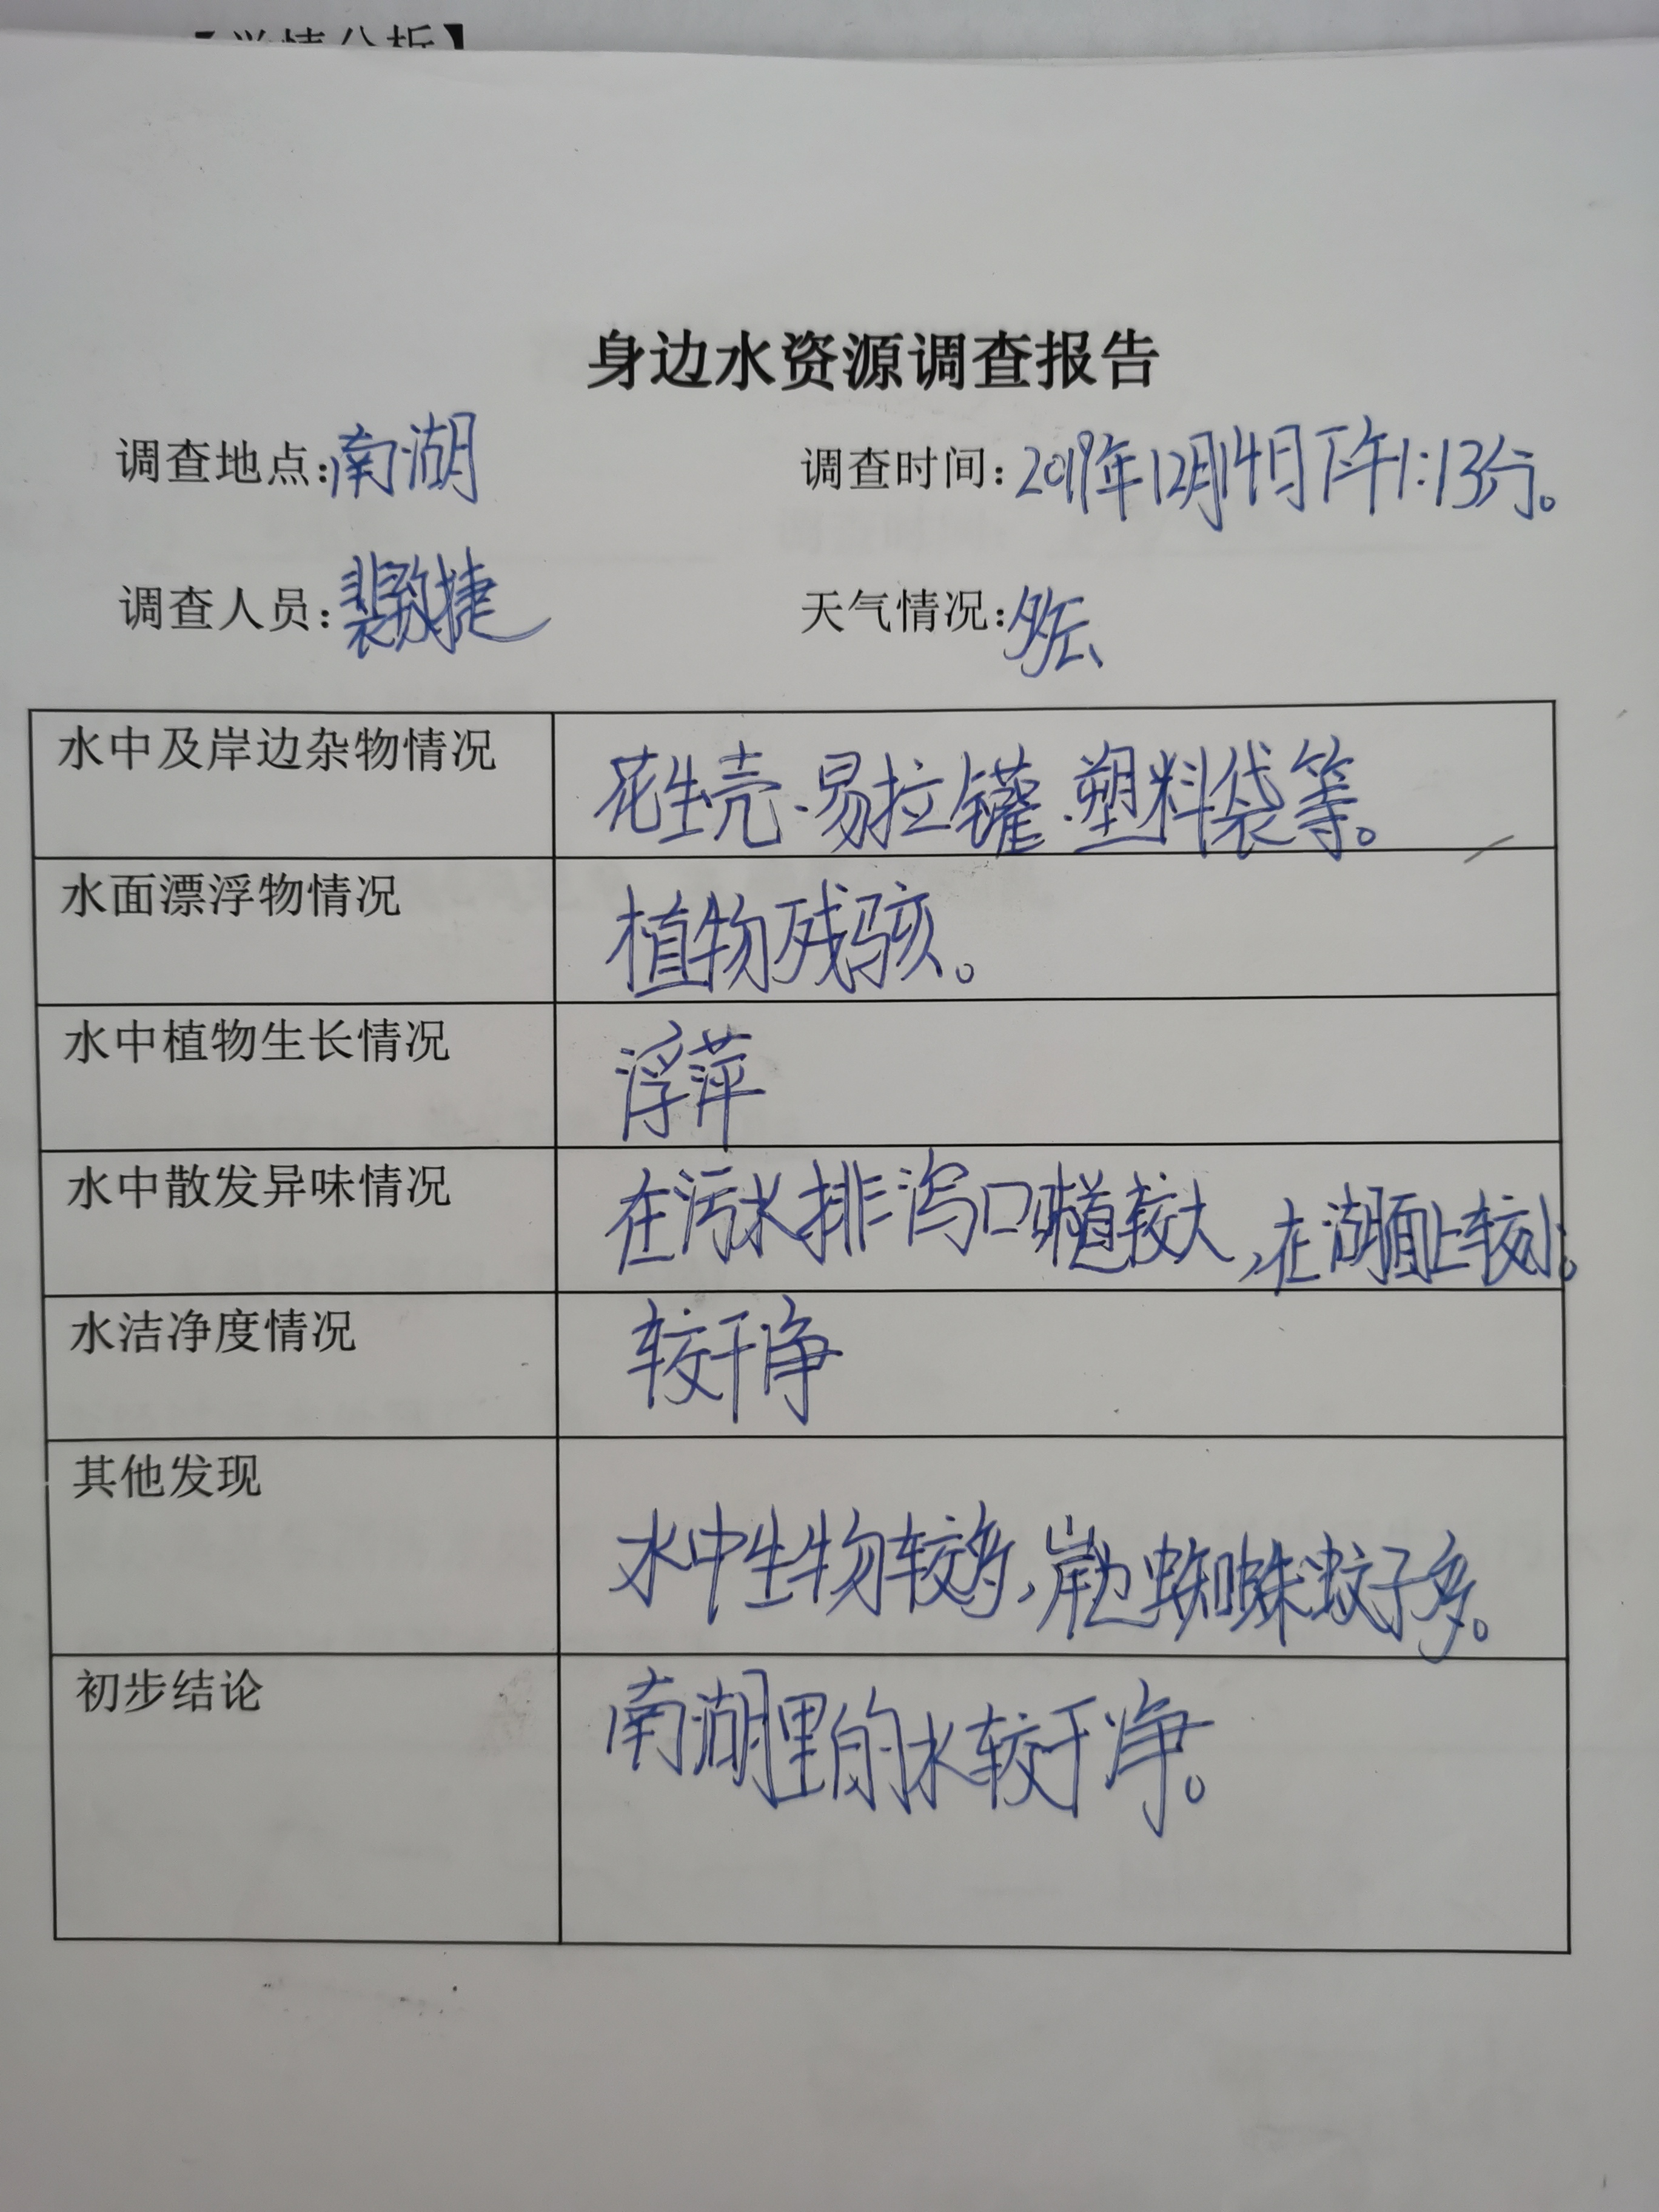 身边水资源调查报告
调查地点:南湖 调查时间:2019年12月14日下午1:13分。
调查人员:裴敦捷 天气情况:多云
水中及岸边杂物情况 花生壳、易拉罐、塑料袋等。
水面漂浮物情况 植物残骸。
水中植物生长情况 浮萍
水中散发异味情况 在污水排泻口味道较大,在湖面上较小。
水洁净度情况 较干净
其他发现 水中生物较多,岸边蜘蛛蚊子多。
初步结论 南湖里的水较干净。